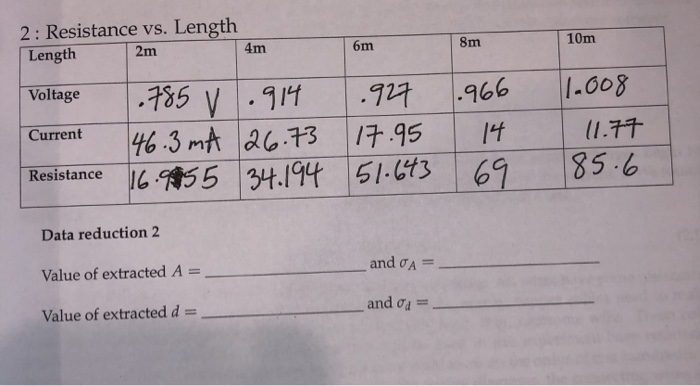 2 : Resistance vs. Length
Length 2m 4m 6m 8m 10m
Voltage .785 V .914 .927 .966 1.008
Current 46.3 mA 26.73 17.95 14 11.77
Resistance 16.955 34.194 51.643 69 85.6
Data reduction 2
Value of extracted A = and σA =
Value of extracted d = and σd =